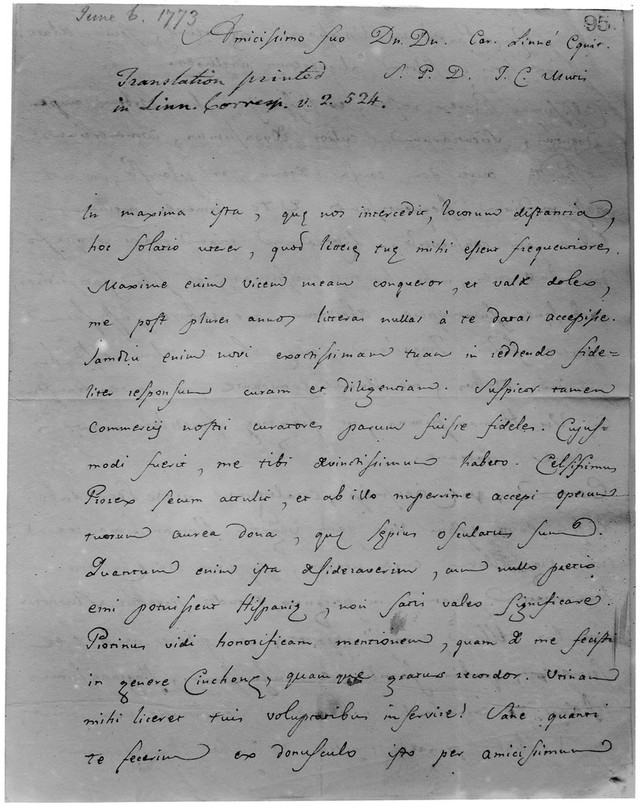 June 6. 1773
95.
Amicissimo suo Dn. Dn. Car. Linné Equit.
S. P. D. J. C. Mutis
Translation printed
in Linn. Corresp. v. 2. 524.
In maxima ista, quę nos intercedit, locorum distantia,
hoc solatio uterer, quod litterę tuę mihi essent frequentiores.
Maxime enim vicem meam conqueror, et valde doleo,
me post plures annos litteras nullas à te datas accepisse.
Jamdiu enim novi exactissimam tuam in reddendo fide=
liter responsum curam et diligentiam. Suspicor tamen
Commercij nostri curatores parum fuisse fideles. Cujus-
modi fuerit, me tibi devinctissimum habeto. Celsissimus
Prorex secum attulit, et ab illo nuperrime accepi operum
tuorum aurea dona, quę sępius osculatus sum.
Quantum enim ista desideraverim, cum nullo pretio
emi potuissent Hispanię, non satis valeo significare.
Protinus vidi honorificam mentionem, quam de me fecisti
in genere Cinchonę, quamque gratus recordor. Utinam
mihi liceret tuis voluptatibus inservire! Sane quanti
te fecerim ex donusculo isto per amicissimum